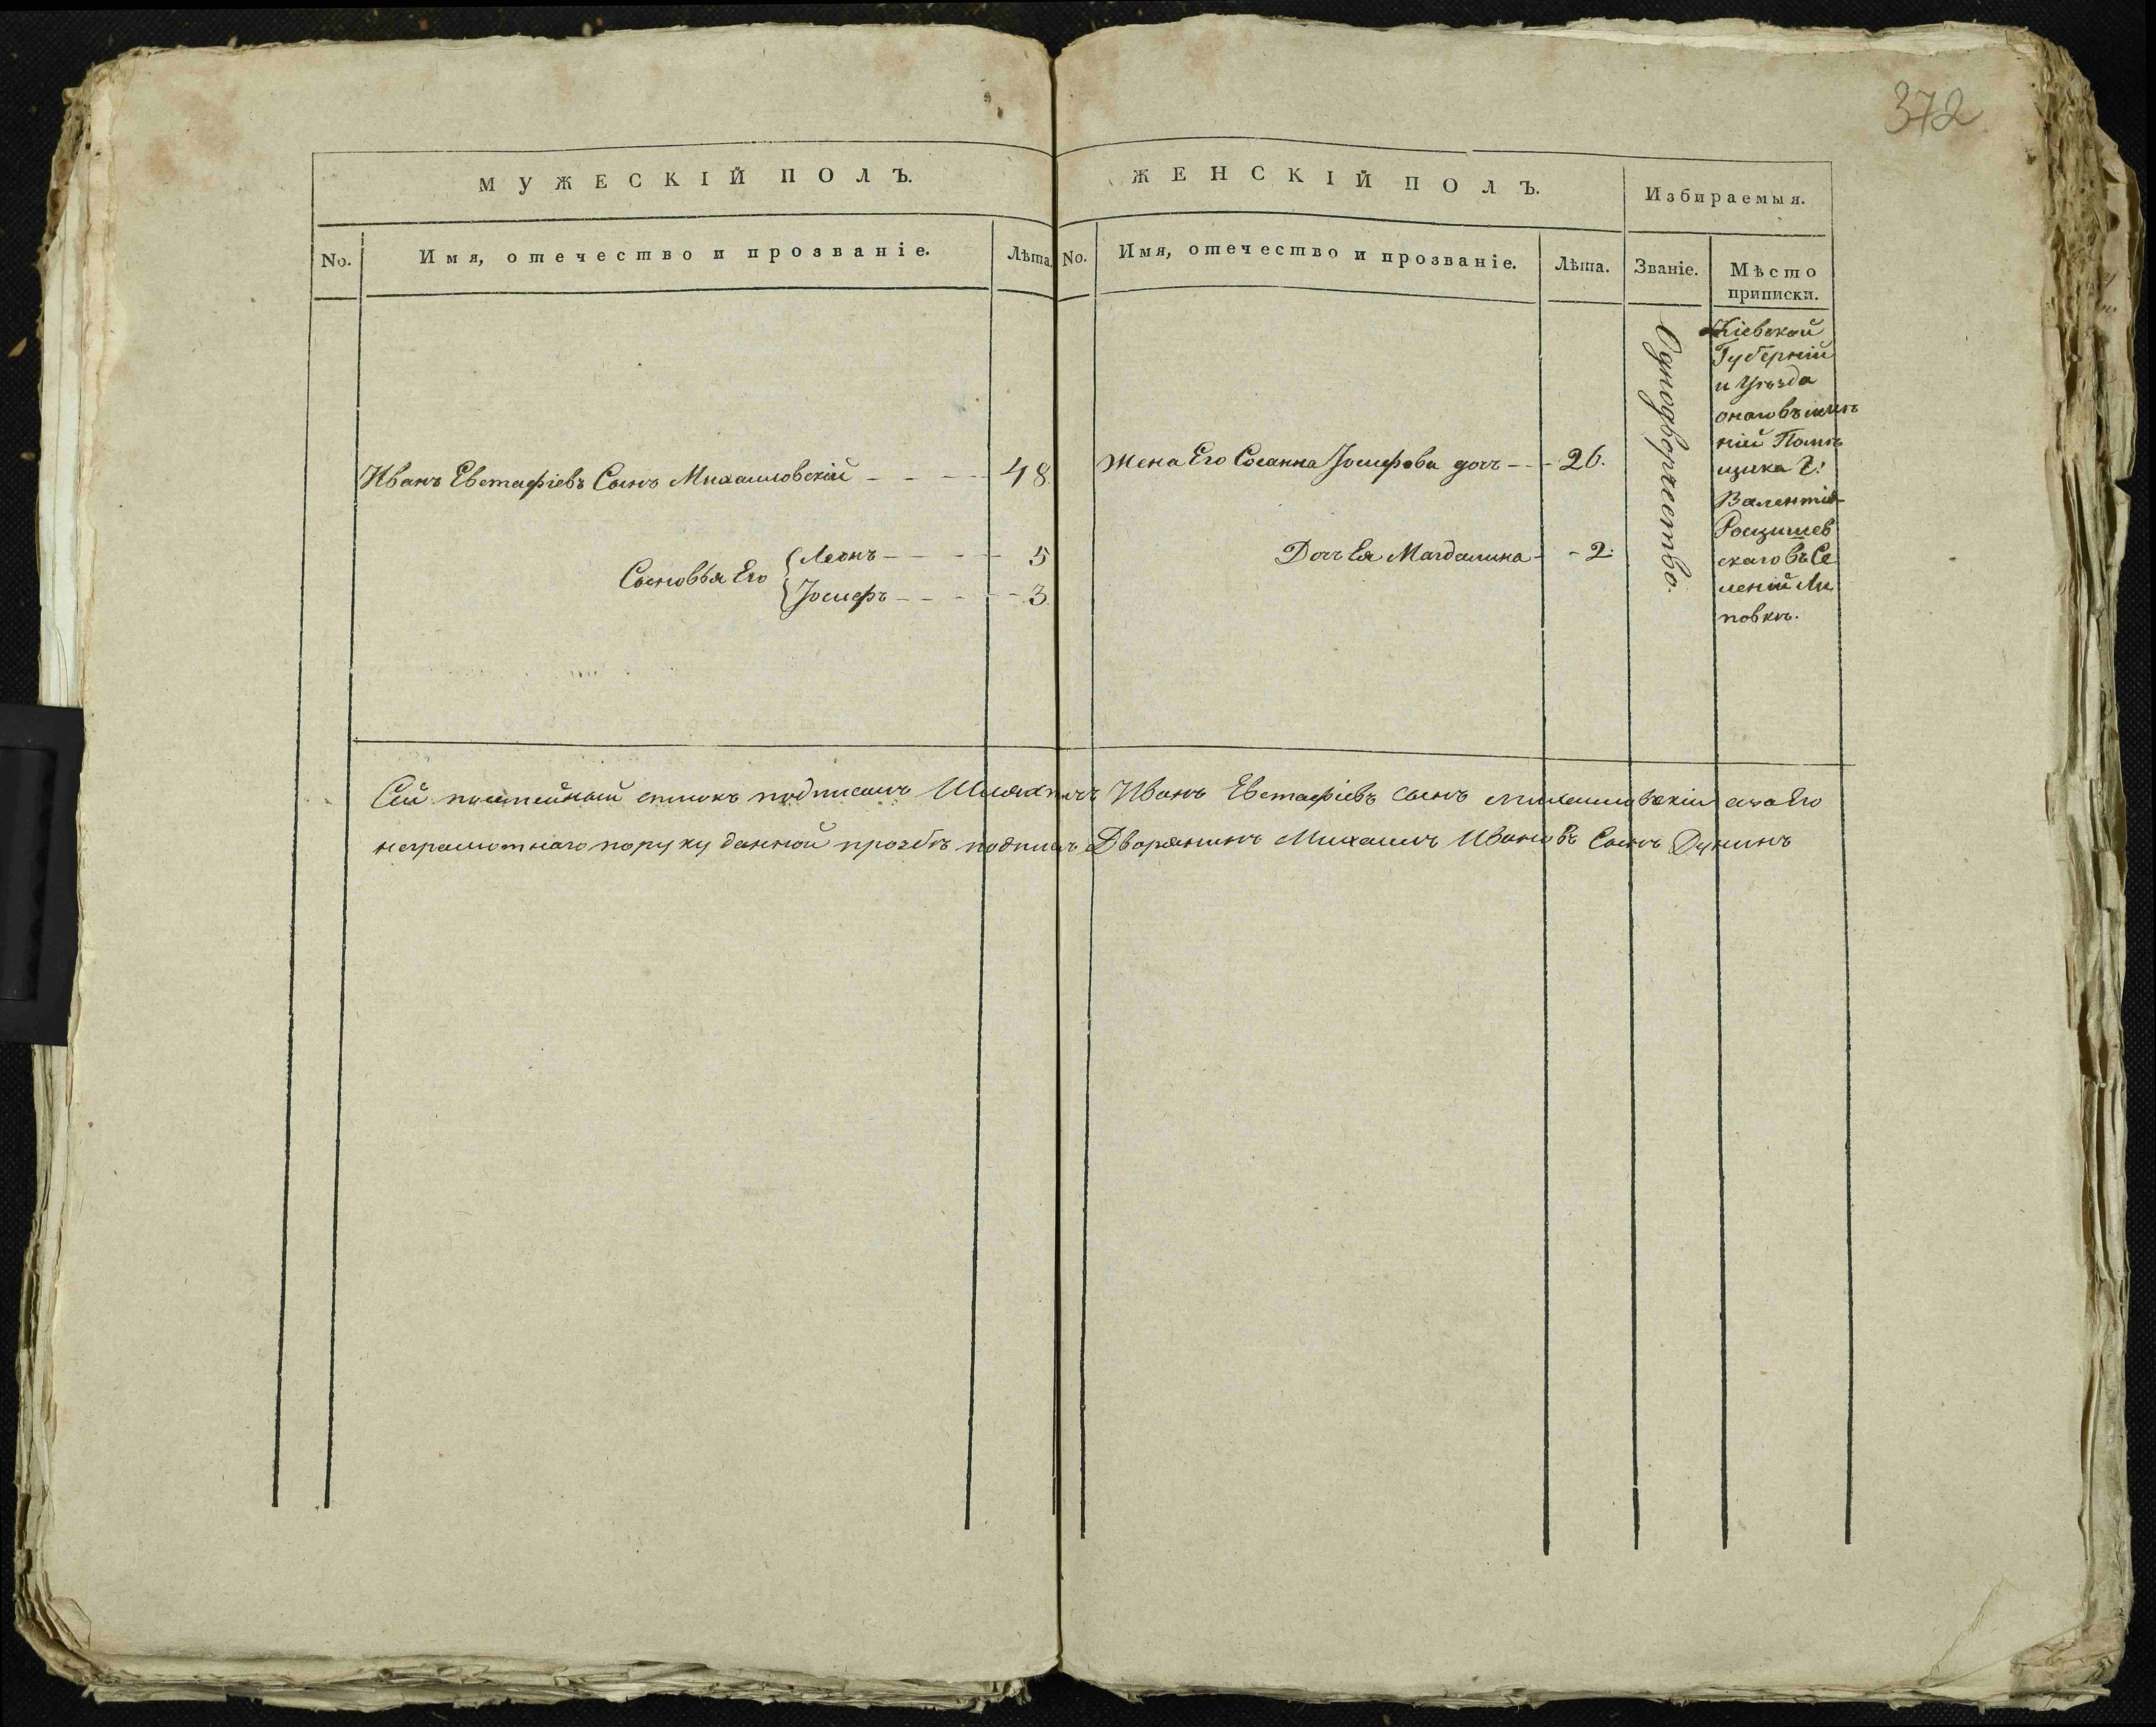 372
МУЖЕСКІЙ ПОЛЪ.
No.
Имя, отечество и прозваніе.
Лѣта.
Иванъ Евстафіевъ Сынъ Михаиловскій - - - - 48.
Сыновья Его
Леонъ - - - - 5
Іосифъ - - - - 3.
ЖЕНСКІЙ ПОЛЪ.
Избираемыя.
No.
Имя, отечество и прозваніе.
Лѣта.
Званіе.
Мѣсто
приписки.
Жена Его Сосанна Іосифова дочь - - 26.
Дочь Ея Магдалина - - 2.
Однодворчество.
Кіевской
Губерніи
и Уѣзда
онаго въ имѣ
ніи Помѣ
щика Г:
Валентія
Росцишев
скаго въ Се
леніи Ли
повкѣ.
Сей посемейный списокъ подписалъ Шляхтичъ Иванъ Евстафіевъ сынъ Михаиловскій а за Его
неграмотнаго по руку данной прозбѣ подписалъ Дворянинъ Михаилъ Ивановъ Сынъ Дунинъ